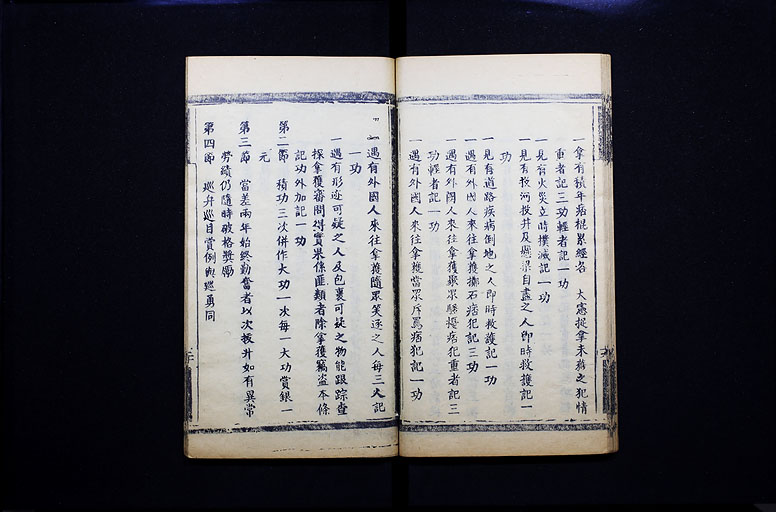 一拿有積年痞棍累經名　大憲捉拿未獲之犯情
重者記三功輕者記一功
一見有火災立時撲滅記一功
一見有投河投井及懸梁自盡之人即時救護記一
功
一見有道路疾病倒地之人即時救護記一功
一遇有外國人來往拿獲擲石痞犯記三功
一遇有外國人來往拿獲聚眾騷擾痞犯重者記三
功輕者記一功
一遇有外國人來往拿獲當眾斥罵痞犯記一功
一遇有外國人來往拿獲隨眾笑逐之人每三人記
一功
一遇有形迹可疑之人及包裹可疑之物能跟踪查
探拿獲審問得實果係匪類者除拿獲竊盜本條
記功外加記一功
第二節　積功三次併作大功一次每一大功賞銀一
元
第三節　當差兩年始終勤奮者以次拔升如有異常
勞績仍隨時破格獎勵
第四節　巡弁巡目賞例與巡勇同